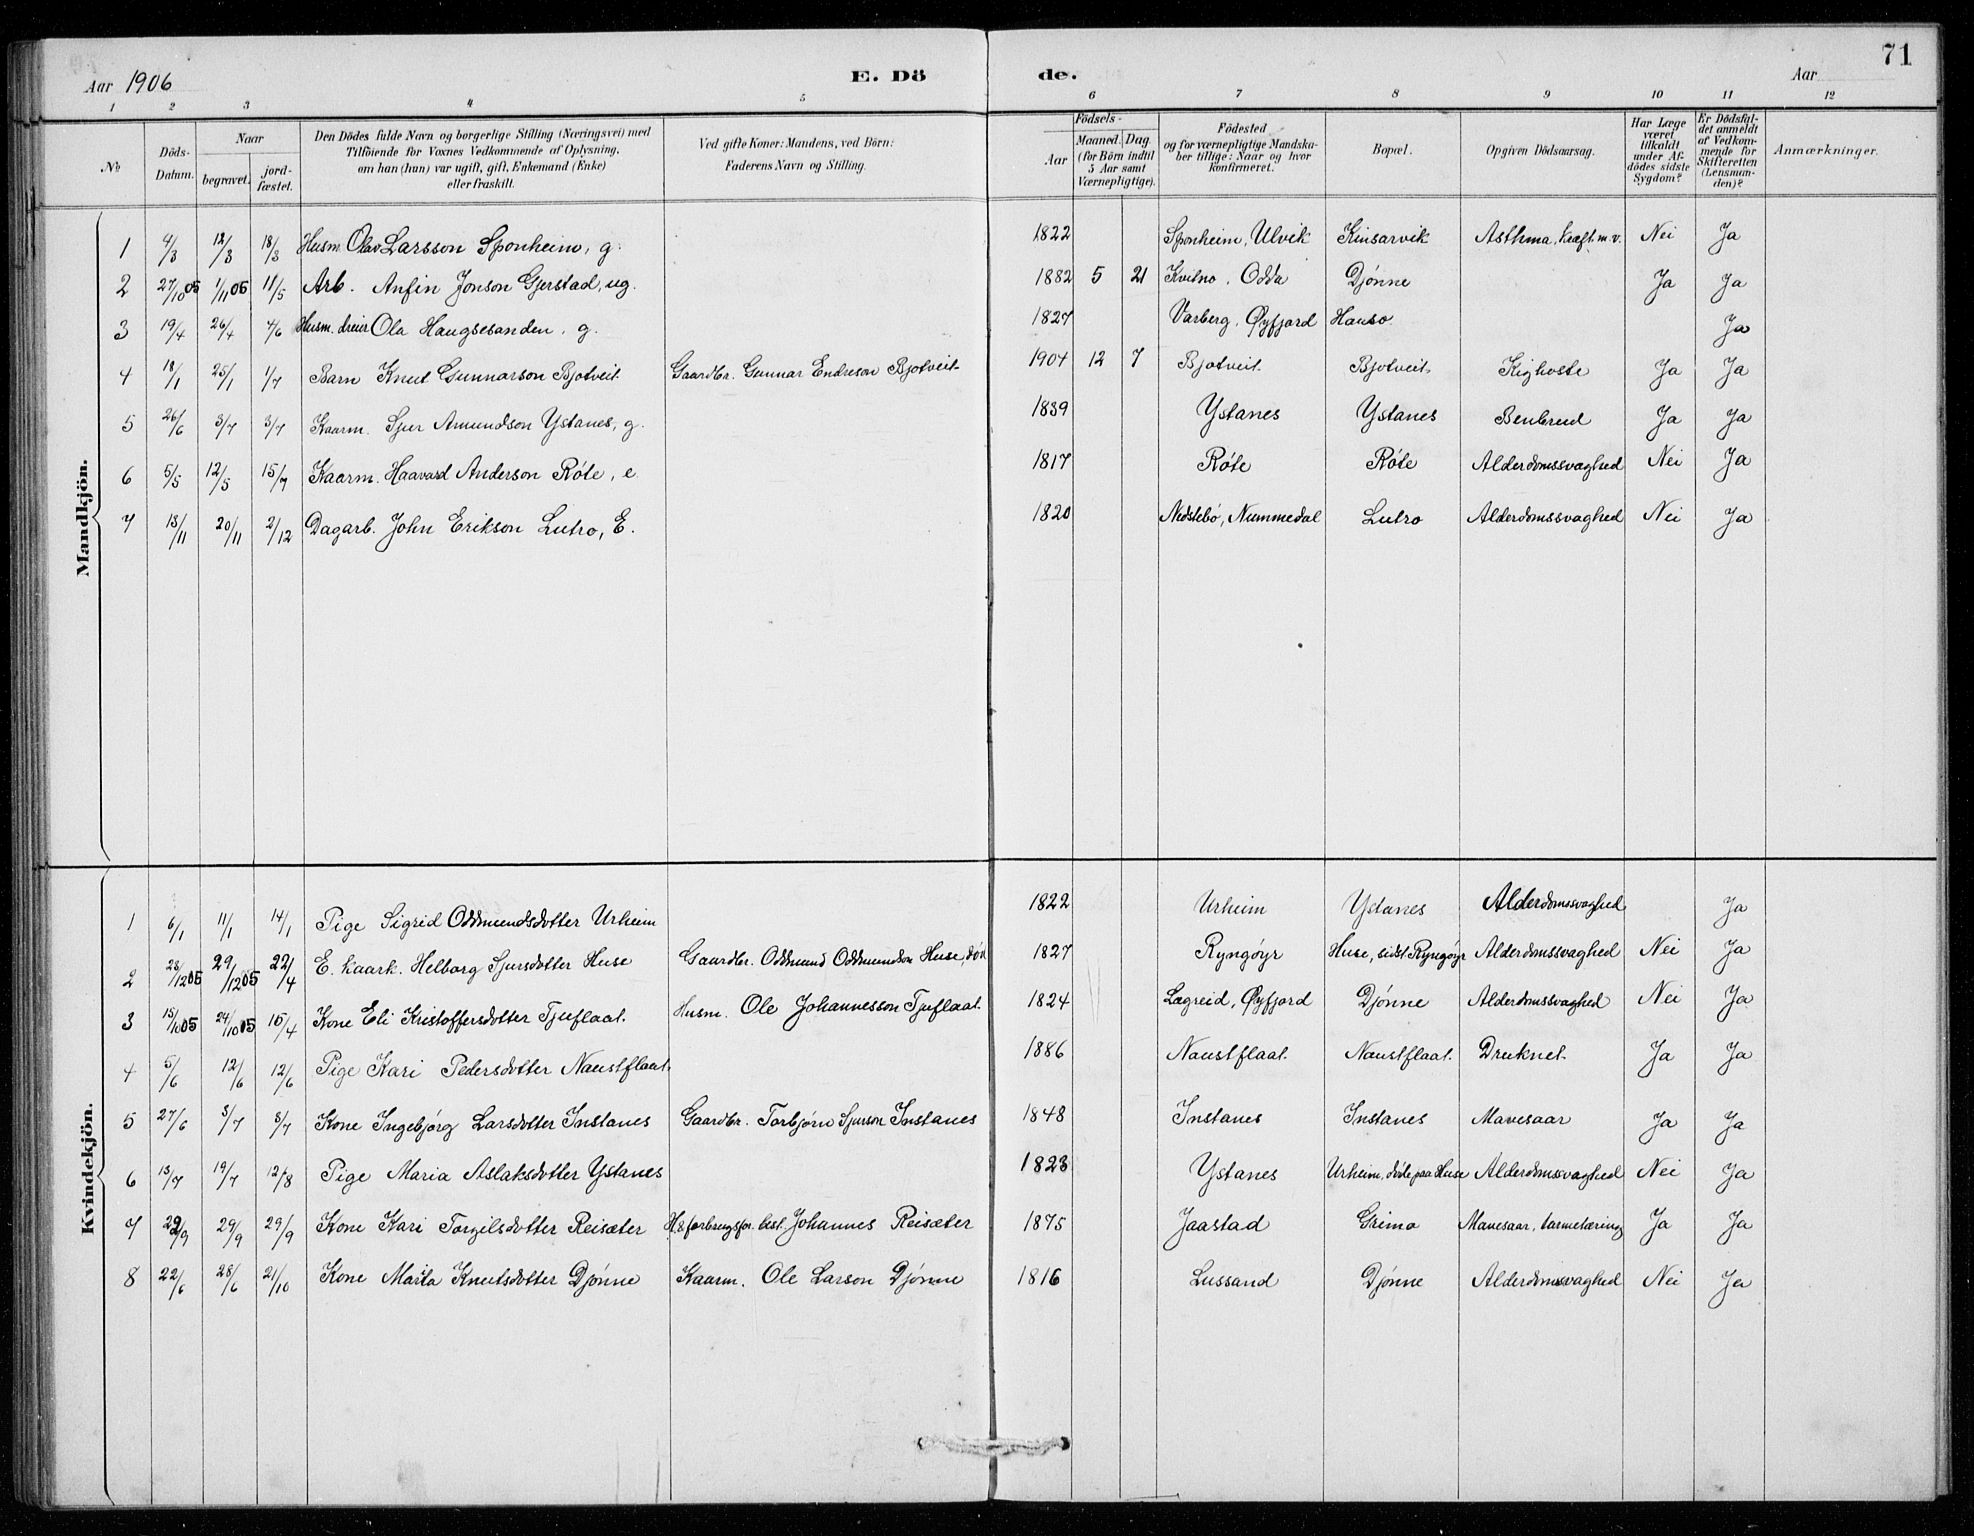 71
Aar 1906 E. Dö de. Aar
1 2 3 4 5 6 7 8 9 10 11 12
№
Döds-Datum.
Naar
begravet.
jordfæstet.
Den Dödes fulde Navn og borgerlige Stilling (Næringsvei) med
Tilföiende for Voxnes Vedkommende af Oplysning,
om han (hun) var ugift, gift, Enkemand (Enke)
eller fraskilt.
Ved gifte Koner: Mandens, ved Börn:
Faderens Navn og Stilling.
Födsels-
Aar
Maaned. Dag.
(for Börn indtil
5 Aar samt
Værnepligtige).
Födested
og for værnepligtige Mandska-
ber tillige: Naar og hvor
konfirmeret.
Bopæl.
Opgiven Dödsaarsag.
Har Læge
været
tilkaldt
under Af-
dödes sidste
Sygdom?
Er Dödsfal-
det anmeldt
af Vedkom-
mende for
Skifteretten
(Lensman-
den)?
Anmærkninger.
Mandkjön.
1 4/3 12/3 18/3 Husm. Olav Larsson Sponheim, g. 1822 Sponheim, Ulvik Kinsarvik Asthma, kræft m.v. Nei Ja
2 27/10 05 1/11 05 11/5 Arb. Anfin Jonson Gjerstad, ug. 1882 5 21 Kvitno, Odda Djønne Ja Ja
3 19/4 26/4 4/6 Husm. dreier Ola Haugsesanden, g. 1827 Varberg, Øyfjord Hauso Ja
4 18/1 25/1 1/7 Barn Knut Gunnarson Bjotveit Gaardbr. Gunnar Endreson Bjotveit 1904 12 7 Bjotveit Bjotveit Kighoste Ja Ja
5 26/6 3/7 3/7 Kaarm. Sjur Amundson Ystanes, g. 1839 Ystanes Ystanes Benbrud Ja Ja
6 5/5 12/5 15/7 Kaarm. Haavard Anderson Røte, e 1817 Røte Røte Alderdomssvaghed Nei Ja
7 13/11 20/11 2/12 Dagarb. John Erikson Lutro, E. 1820 Nedstebø, Nummedal Lutro Alderdomssvaghed Nei Ja
Kvindekjön.
1 6/1 11/1 14/1 Pige Sigrid Oddmundsdotter Urheim 1822 Urheim Ystanes Alderdomssvaghed Ja
2 23/12 05 29/12 05 22/4 E. kaark. Helborg Sjursdotter Huse Gaardbr. Oddmund Oddmundson Huse, død 1827 Ryngøyr Huse, sidst Ryngøyr Alderdomssvaghed Nei Ja
3 15/10 05 24/10 05 16/4 Kone Eli Kristoffersdotter Tjuflaat. Husm. Ole Johannesson Tjuflaat. 1824 Lægreid, Øyfjord Djønne Alderdomssvaghed Nei Ja
4 5/6 12/6 12/6 Pige Kari Pedersdotter Naustflaat. 1886 Naustflaat. Naustflaat. Druknet. Ja Ja
5 27/6 3/7 3/7 Kone Ingebjørg Larsdotter Instanes Gaardbr. Torbjørn Sjurson Instanes 1848 Instanes Instanes Mavesaar Ja Ja
6 13/7 19/7 12/8 Pige Maria Aslaksdotter Ystanes 1823 Ystanes Urheim, døde paa Huse Alderdomssvaghed Nei Ja
7 22/9 29/9 29/9 Kone Kari Torgilsdotter Reisæter forbrugsfor. best. Johannes Reisæter 1875 Jaastad Grimo Mavesaar, tarmtæring Ja Ja
8 22/6 28/6 21/10 Kone Marita Knutsdotter Djønne Kaarm. Ole Larson Djønne 1816 Lussand Djønne Alderdomssvaghed Nei Ja